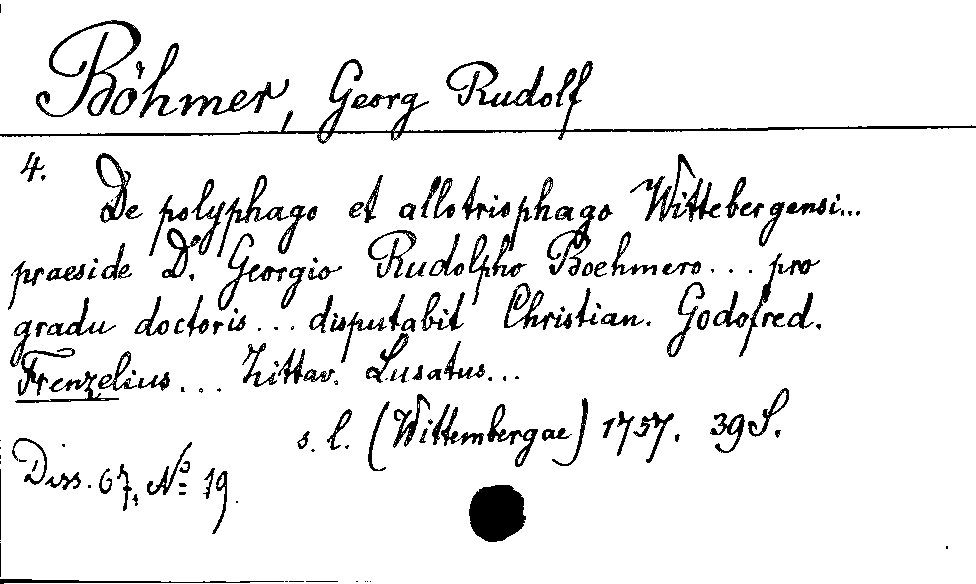 Böhmer, Georg Rudolf
4. De polyphago et allotriophago Wittebergensi...
praeside D. Georgio Rudolpho Boehmero... pro
gradu doctoris... disputabit Christian. Godofred.
Frenzelius... Zittav. Lusatus...
s. l. (Wittembergae) 1757. 39 S.
Diss. 67, No 19.